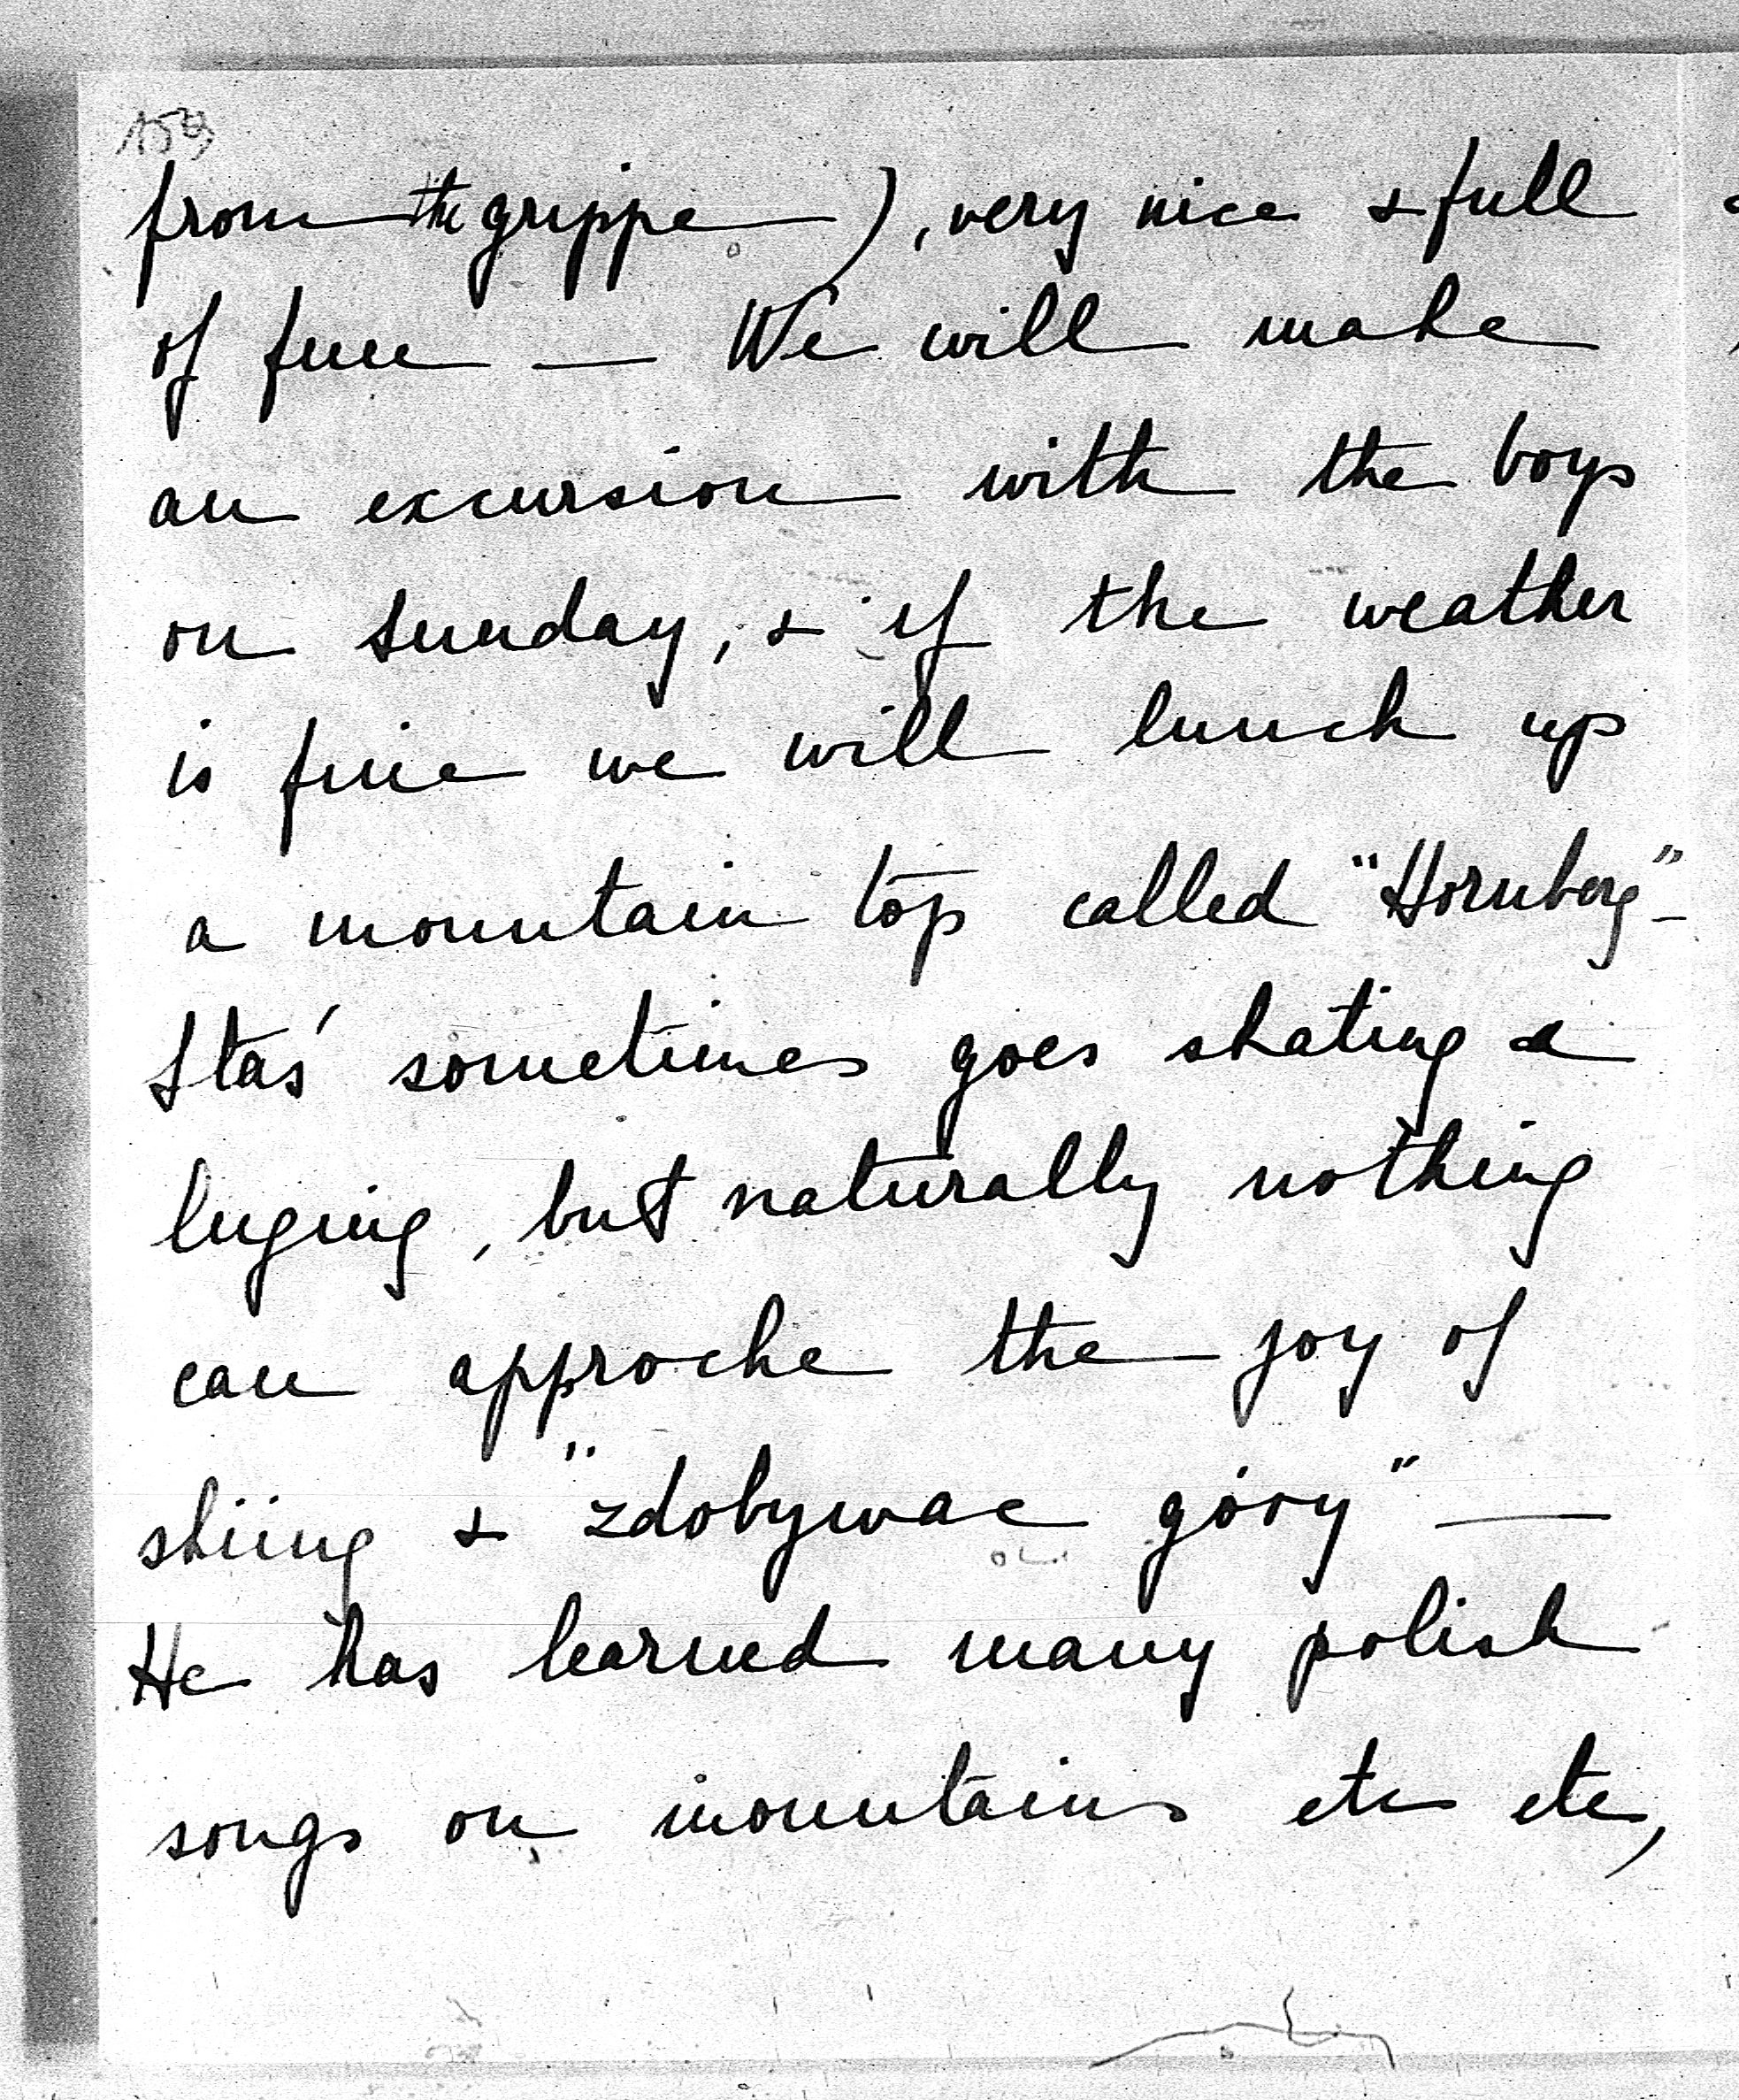 159
from the grippe), very nice & full
of fun — We will make
an excursion with the boys
on Sunday, & if the weather
is fine we will lunch up
a mountain top called "Hornberg" -
Staś sometimes goes skating &
luging, but naturally nothing
can approche the joy of
skiing & "zdobywac góry" —
He has learned many polish
songs on mountains etc etc,